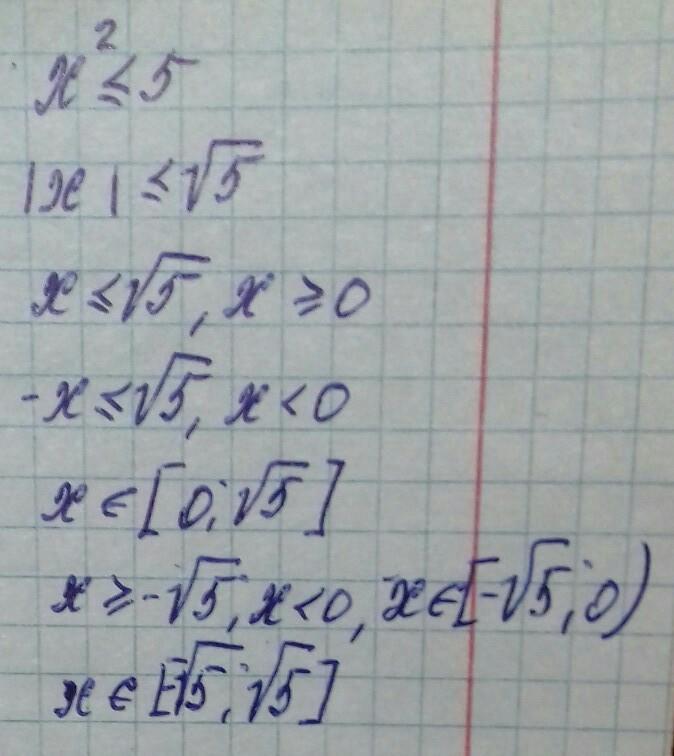 x² ≤ 5
|x| ≤ √5
x ≤ √5, x ≥ 0
-x ≤ √5, x < 0
x ∈ [0; √5]
x ≥ -√5, x < 0, x ∈ [-√5; 0)
x ∈ [-√5; √5]